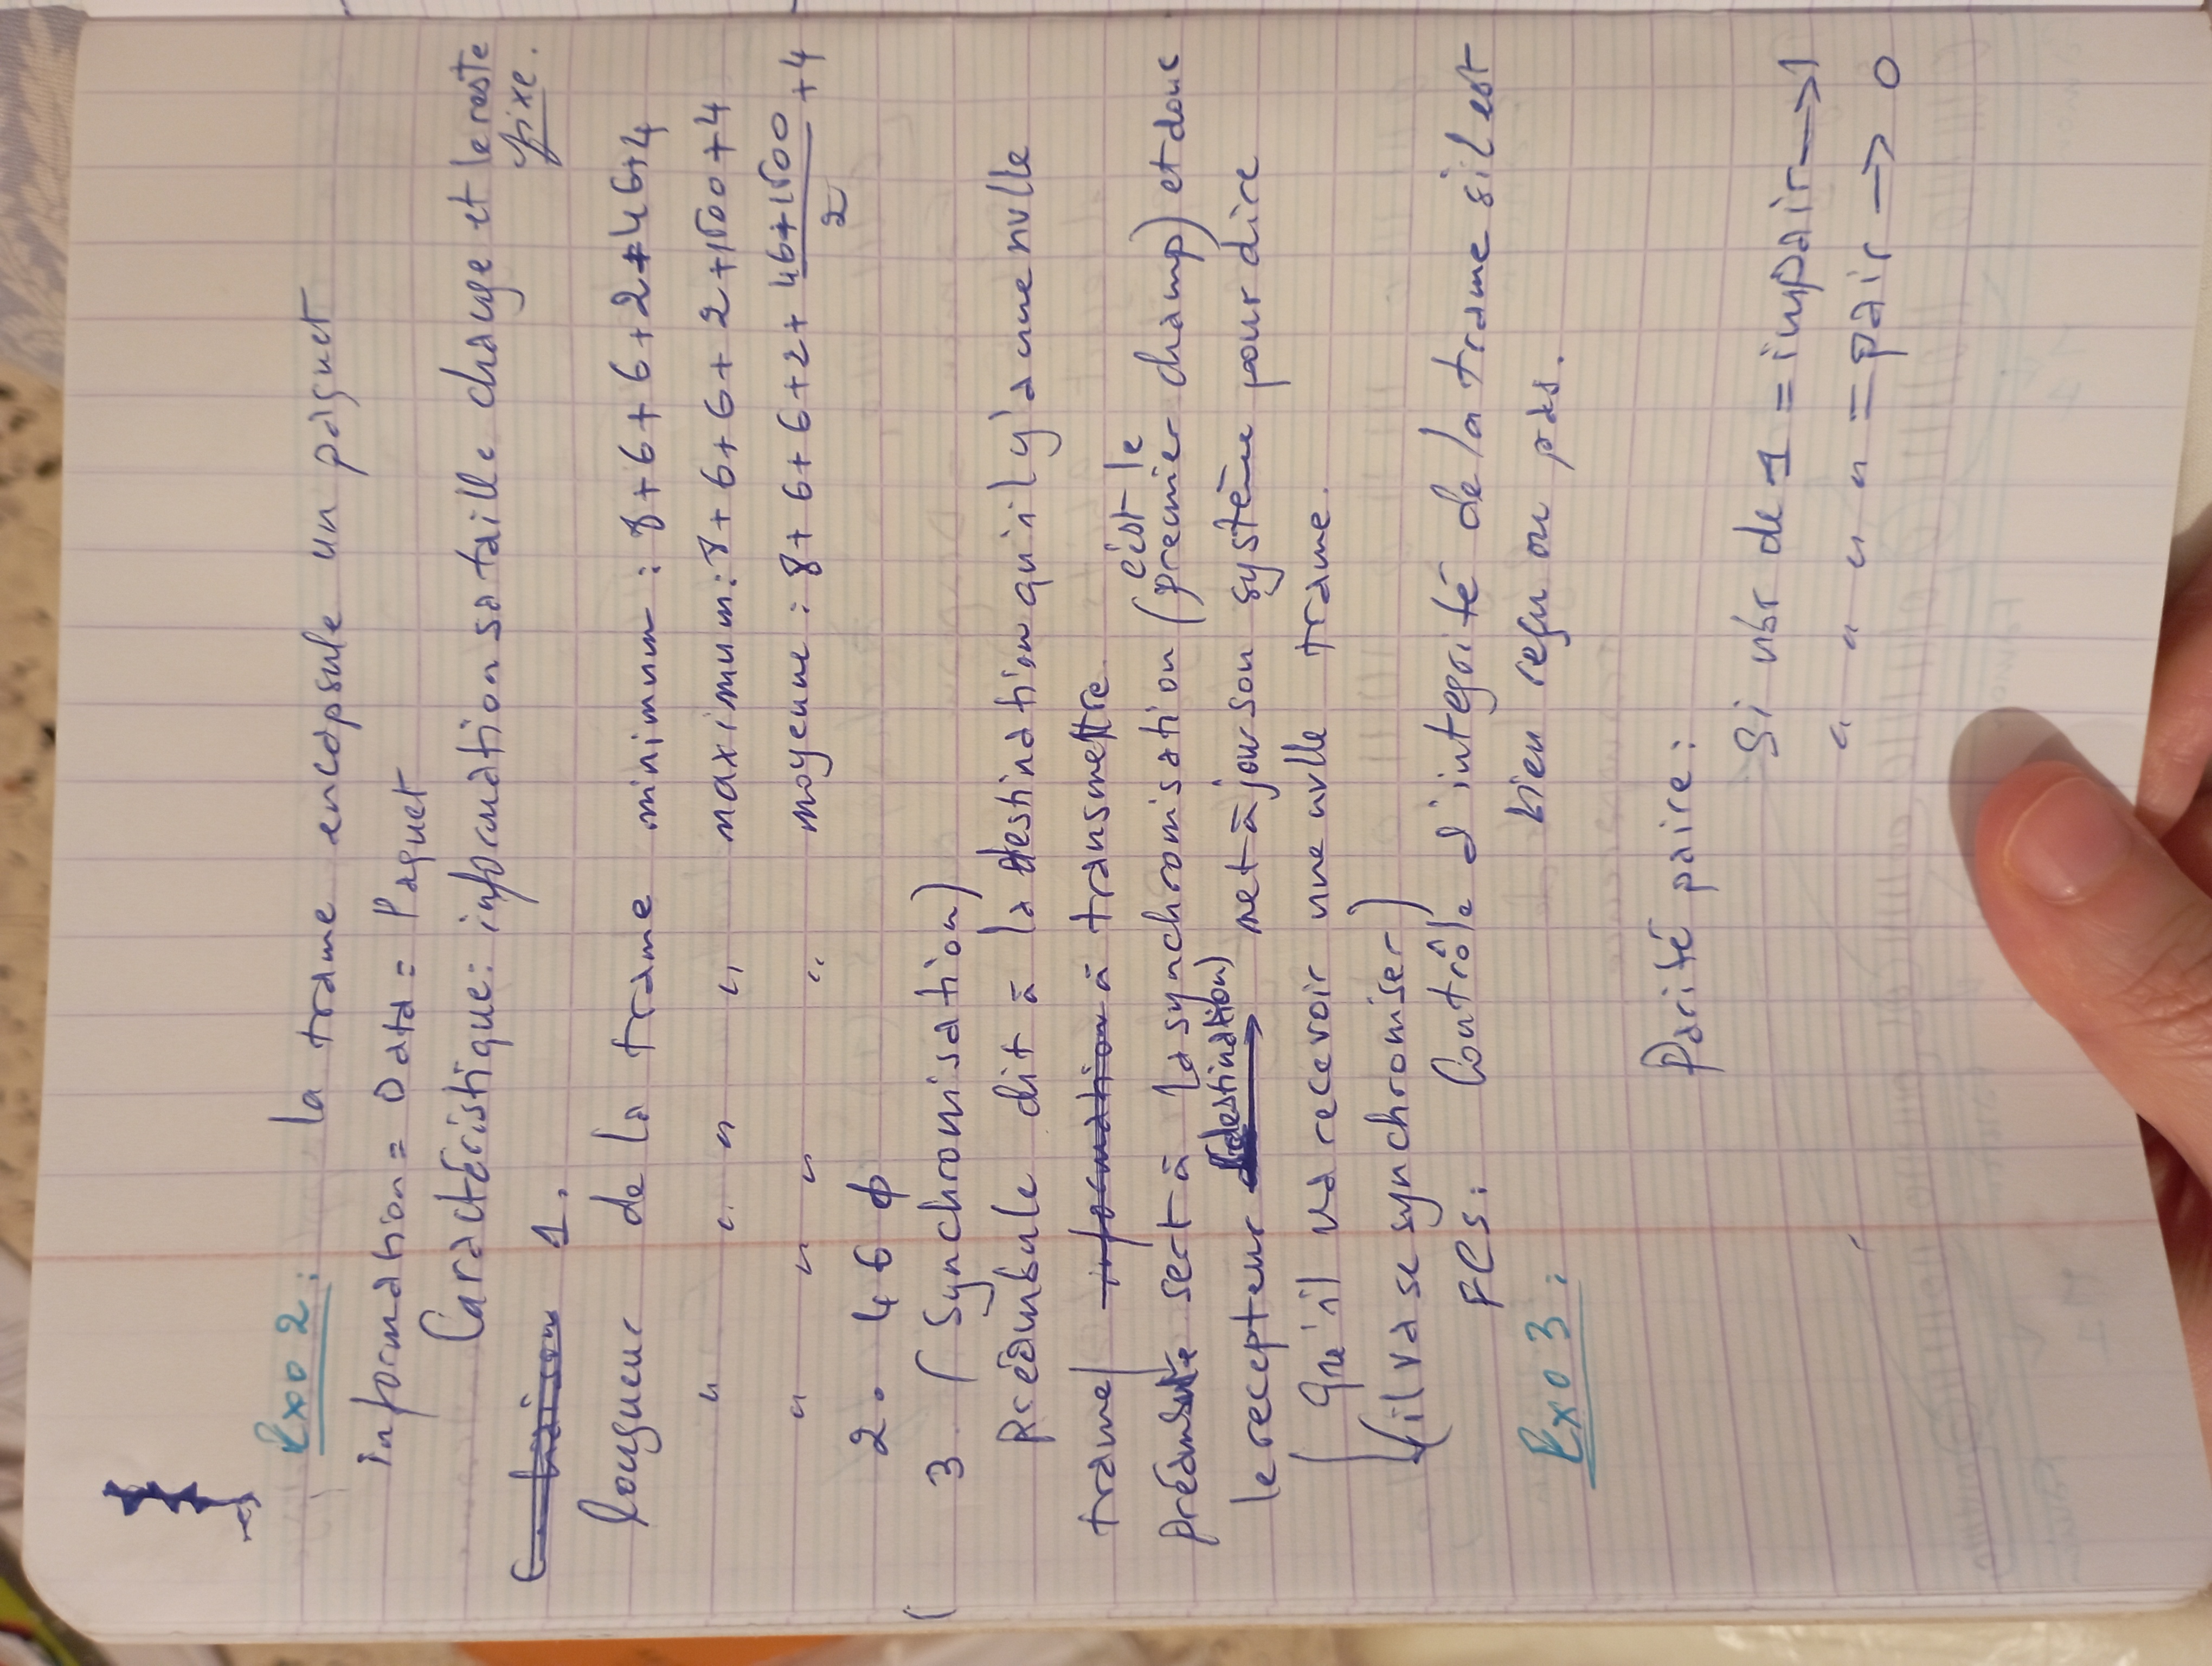 Exo 2 : la trame encapsule un paquet
information = Data = Paquet
Caractéristique : information sa taille change et le reste
fixe.
1.
longueur de la trame minimum : 8+6+6+2+46+4
" " " " maximum : 8+6+6+2+1500+4
" " " " moyenne : 8+6+6+2+ 46+1500/2 +4
2. 46 φ
3. (Synchronisation)
Préambule dit à la destination qu'il y'a une nvlle
trame / information à transmettre
c'est le
préambule sert à la synchronisation (premier champ) et donc
le recepteur (destination) met à jour son système pour dire
qu'il va recevoir une nvlle trame.
(il va se synchroniser)
FCS : Contrôle d'integrité de la trame s'il est
bien reçu ou pas.
Exo 3 :
Parité paire :
Si nbr de 1 = impair → 1
" " " " = pair → 0